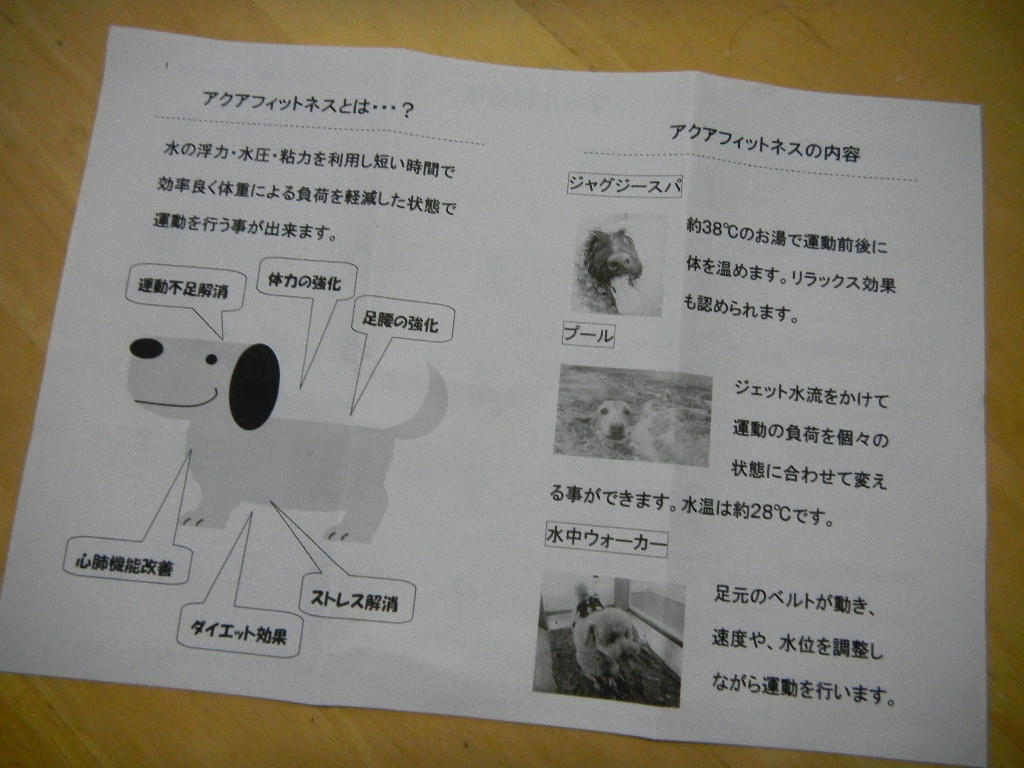 アクアフィットネスとは・・・?
水の浮力・水圧・粘力を利用し短い時間で
効率良く体重による負荷を軽減した状態で
運動を行う事が出来ます。
運動不足解消
体力の強化
足腰の強化
心肺機能改善
ダイエット効果
ストレス解消
アクアフィットネスの内容
ジャグジースパ
約38℃のお湯で運動前後に
体を温めます。リラックス効果
も認められます。
プール
ジェット水流をかけて
運動の負荷を個々の
状態に合わせて変え
る事ができます。水温は約28℃です。
水中ウォーカー
足元のベルトが動き、
速度や、水位を調整し
ながら運動を行います。